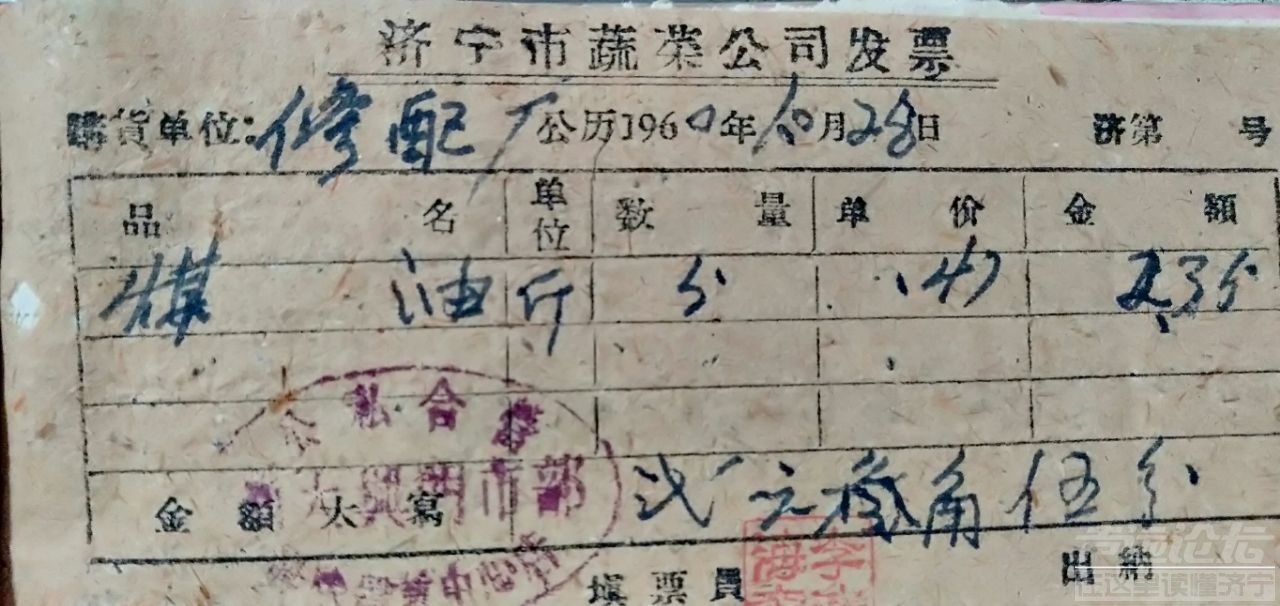 济宁市蔬菜公司发票
購貨单位：修配厂 公历1960年10月28日 济第 号
品名 单位 数量 单价 金額
煤油 斤 5 .47 235
公私合营
門市部
金額大写 弍元叁角伍分
填票員 出納